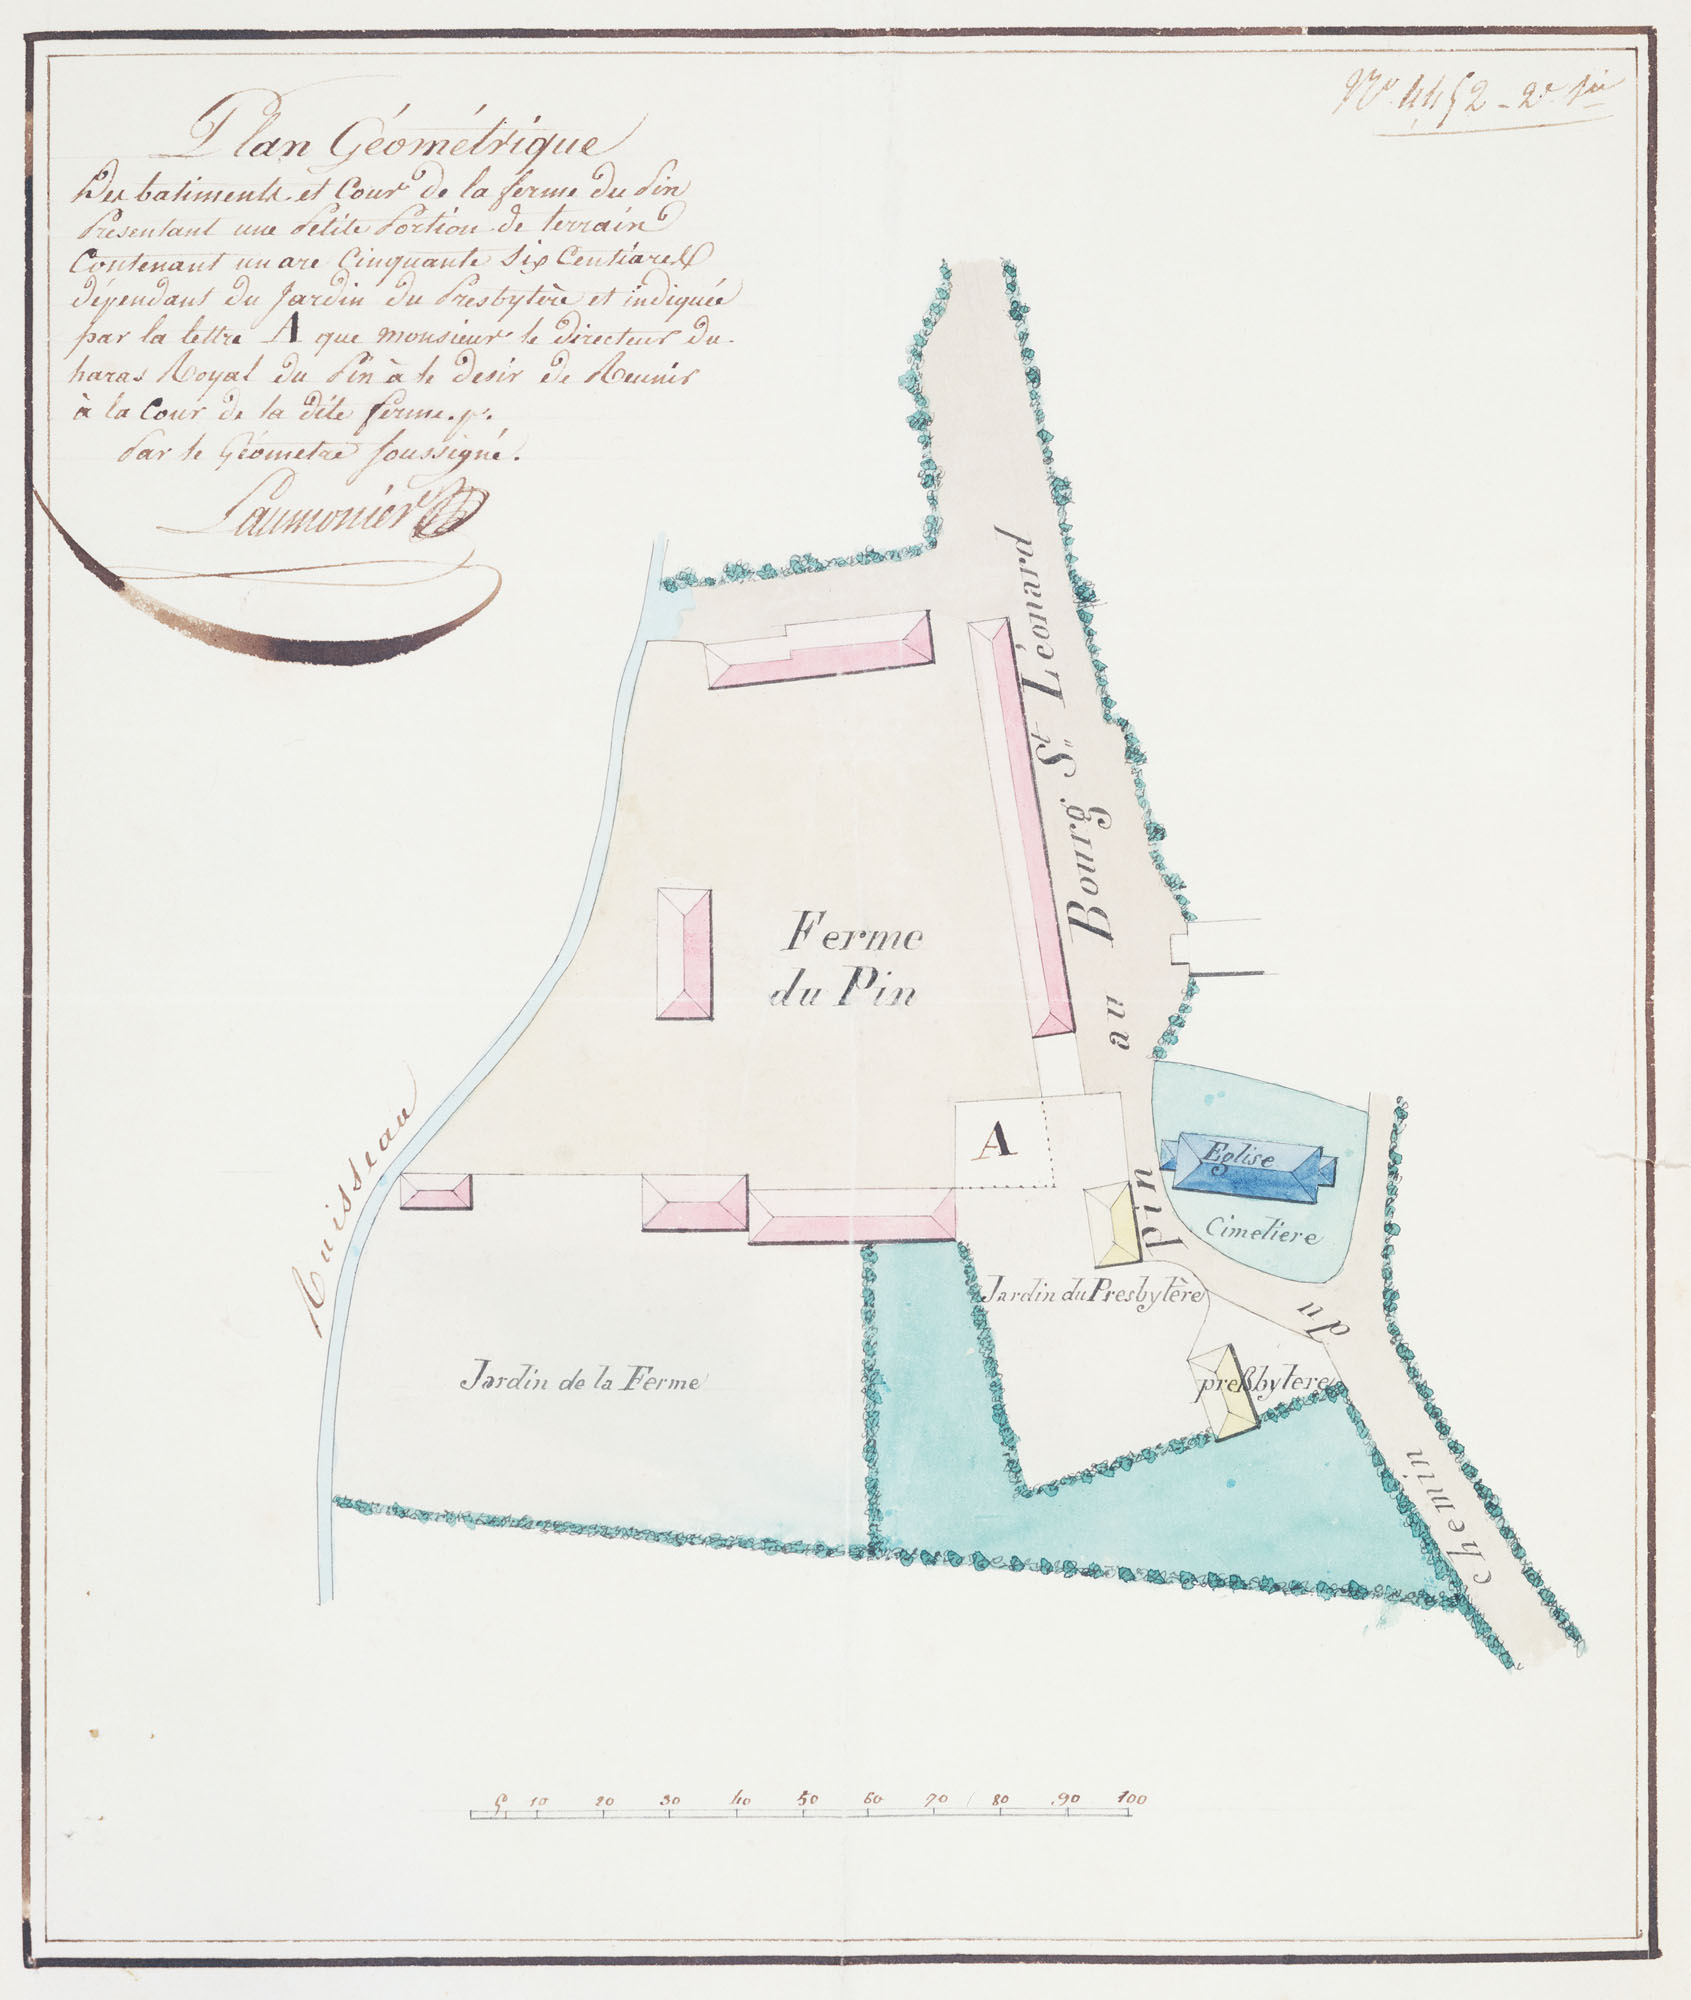 Nº 4452 - 2e Sie
Plan Géométrique
Des batiments et Cour de la ferme du Pin
Présentant une Petite Portion de terrain
Contenant un are Cinquante Six Centiares
dépendant du Jardin du Presbytère et indiquée
par la lettre A que monsieur le directeur du
haras Royal du Pin à le desir de Reunir
à la Cour de la dite ferme.
Par le Géometre soussigné.
Laumonier
chemin du pin au Bourg St Léonard
Ferme
du Pin
A
Ruisseau
Eglise
Cimetiere
Jardin du Presbytère
Jardin de la Ferme
preßbytere
5 10 20 30 40 50 60 70 80 90 100